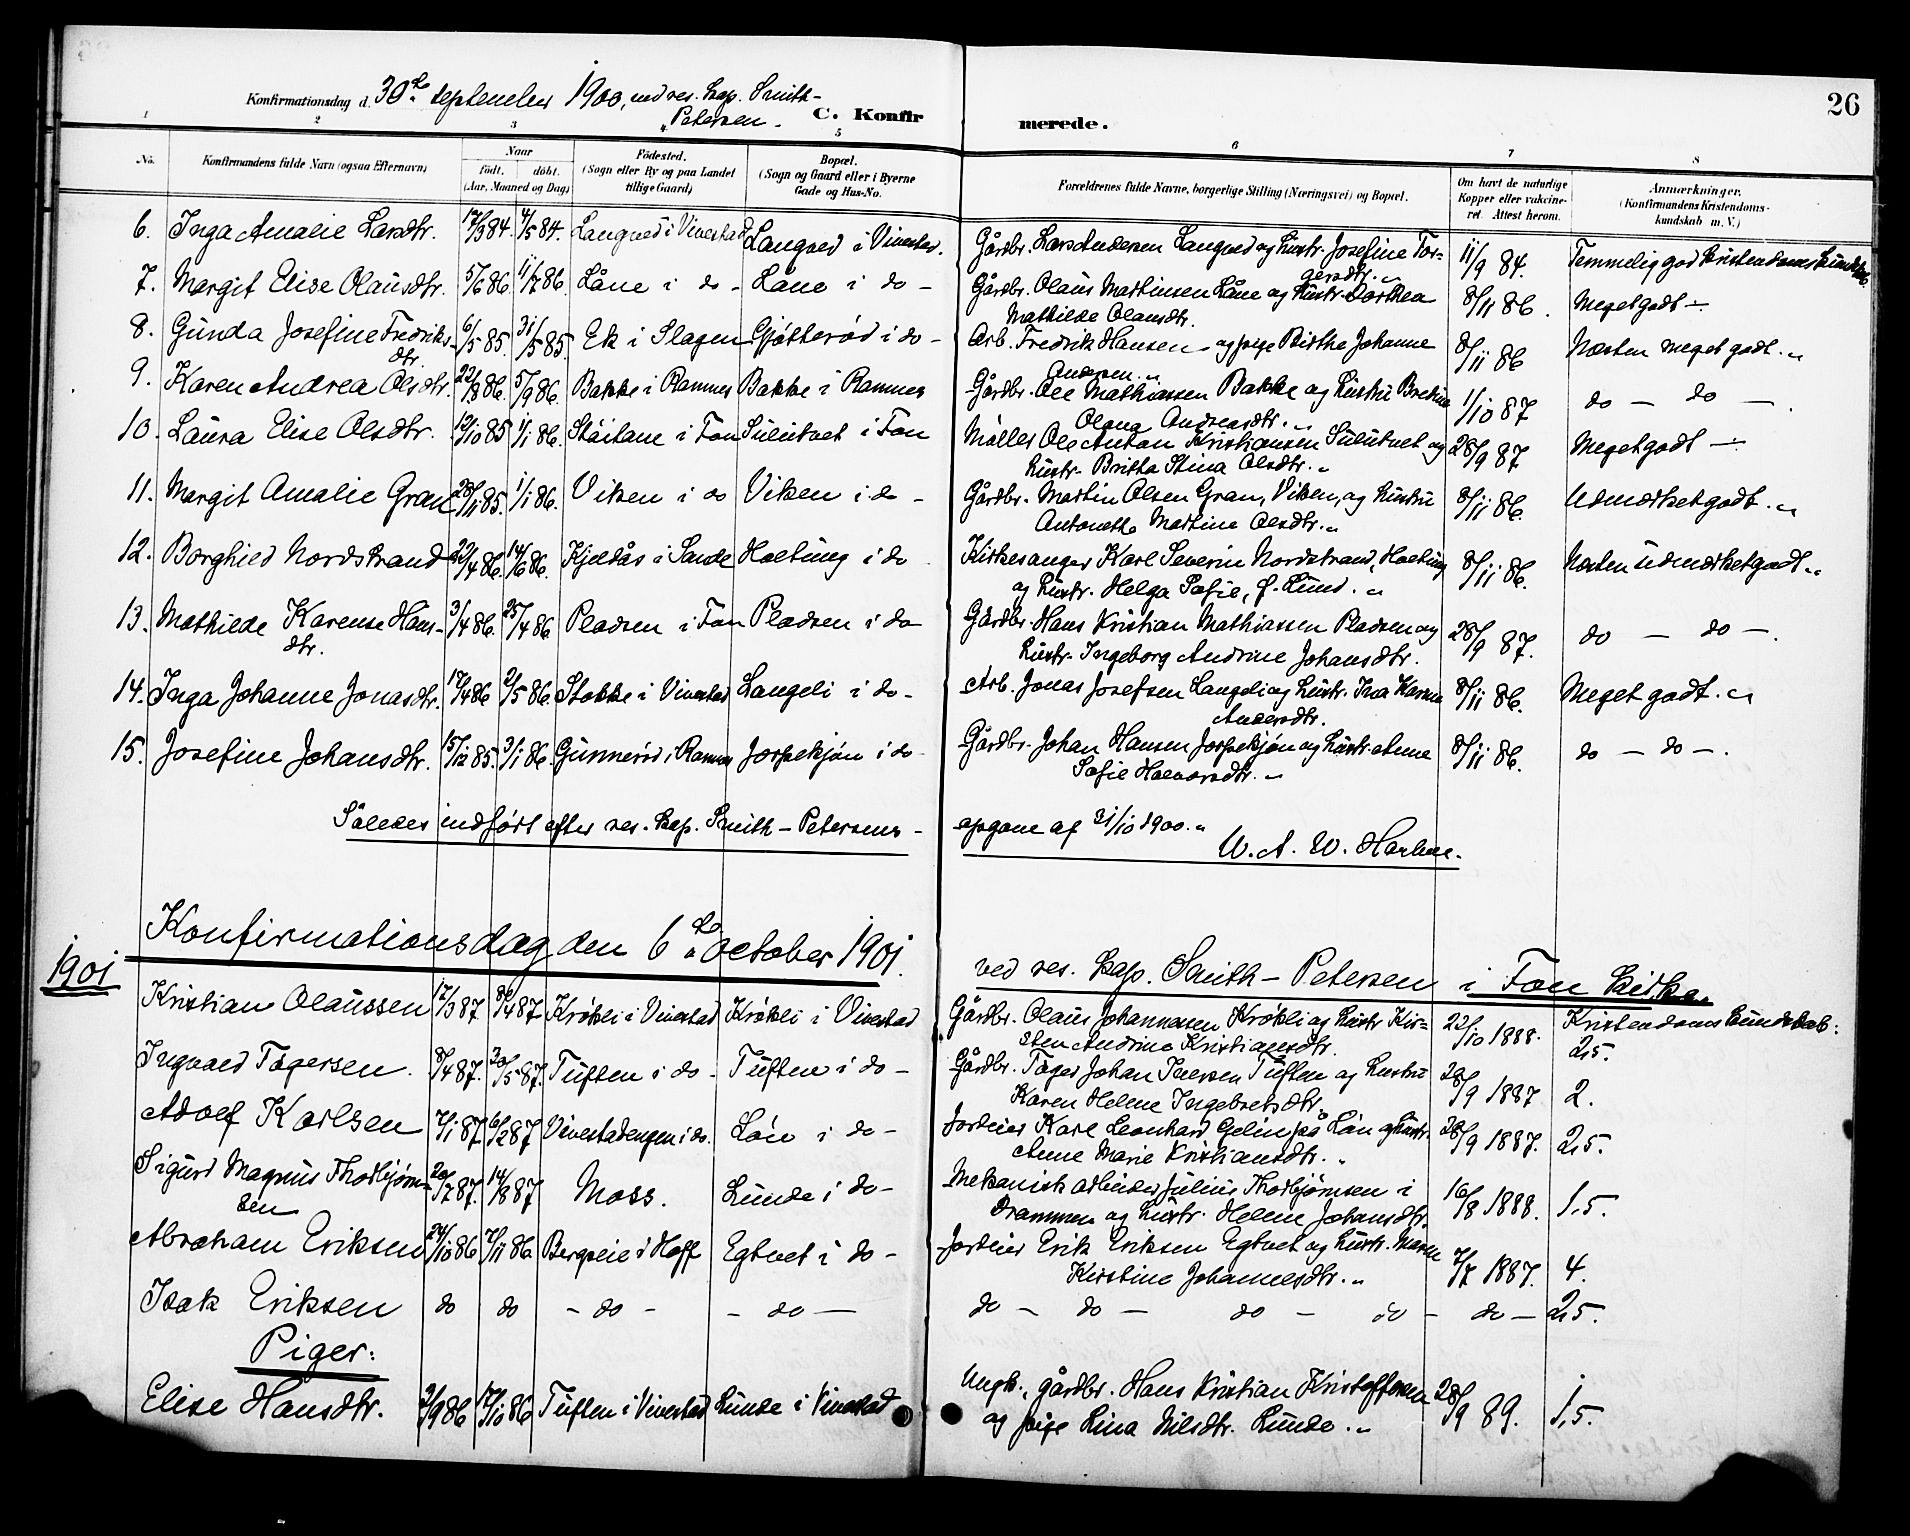 26
Konfirmationsdag d. 30te september 1900, ved res. kap. Smith-
Petersen.
C. Konfirmerede.
1 2 3 5 6 7 8
No. Konfirmandens fulde Navn (ogsaa Efternavn) Naar Födested. Bopæl. Forældrenes fulde Navne, borgerlige Stilling (Næringsvei) og Bopæl. Om havt de naturlige Anmærkninger.
födt. döbt. (Sogn eller By og paa Landet (Sogn og Gaard eller i Byerne Kopper eller vakcine- (Konfirmandens Kristendoms-
(Aar, Maaned og Dag) tillige Gaard) Gade og Hus-No. ret. Attest herom. kundskab m. V.)
6. Inga Amalie Larsdtr. 17/3 84. 4/5 84. Langved i Vivestad Langved i Vivestad. Gårdbr. Lars Andersen Langved og hustr. Josefine Tor- 11/9 84. Temmelig god kristendomskundskab.
gersdtr. „
7. Margit Elise Olausdtr. 5/6 86. 11/7 86. Låne i do - Låne i do - Gårdbr. Olaus Martinsen Låne og hustr. Dorthea 8/11 86. Meget godt -
Mathilde Olausdtr.
8. Gunda Josefine Fredriks- 6/5 85. 31/5 85. Ek i Slagen Gjøtterød i do - Arb. Fredrik Hansen og pige Birthe Johanne 8/11 86 Næsten meget godt. „
dtr. Andersen. „
9. Karen Andrea Olsdtr. 22/8 86. 5/9 86. Bakke i Ramnes Bakke i Ramnes Gårdbr. Ole Mathiassen Bakke og hustru Bredine 1/10 87 do - do -.
Olava Andreasdtr. „
10. Laura Elise Olsdtr. 12/10 85 1/1 86. i Fon Sulutvet i Fon Møller Ole Anton Kristiansen Sulutvet og 28/9 87 Meget godt -
hustr. Britha Stina Olsdtr. „
11. Margit Amalie Gran 28/11 85. 1/1 86. Viken i do Viken i do - Gårdbr. Martin Olsen Gran, Viken, og hustru 8/11 86. Udmærket godt. „
Antonette Martine Olsdtr. „
12. Borghild Nordstrand 22/4 86. 14/6 86. Kjeldås i Sande Holtung i do Kirkesanger Karl Severin Nordstrand, Holtung 8/11 86. Næsten udmærket godt. „
og hustr. Helga Sofie, f. Lund. „
13. Mathilde Karense Hans- 3/4 86. 25/4 86 Pladsen i Fon Pladsen i do Gårdbr. Hans Kristian Mathiassen Pladsen og 28/9 87. do - do -.
dtr. hustr. Ingeborg Andrine Johansdtr.
14. Inga Johanne Jonasdtr. 17/4 86 2/5 86. Stokke i Vivestad Langeli i do - Arb. Jonas Josefsen Langeli og hustr. Ina Karine 8/11 86. Meget godt. „
Andersdtr.
15. Josefine Johansdtr. 15/12 85. 3/1 86. Gunnerød i Ramnes Jorpekjøn i do - Gårdbr. Johan Hansen Jorpekjøn og hustr. Anne 8/11 86. do - do -.
Sofie Halvorsdtr. „
Således indført efter res. kap. Smith-Petersens opgave af 31/10 1900. „
W. A. W. Harboe.
1901 Konfirmationsdag den 6te october 1901. ved res. kap. Smith-Petersen i Fon kirke.
Kristian Olaussen 17/3 87 /4 87 Krøkli i Vivestad Krøkli i Vivestad Gårdbr. Olaus Johannesen Krøkli og hustr. Kir- 22/10 1888. Kristendomskundskab:
sten Andrine Kristiansdtr. 2,5.
Ingvald Tågersen. 8/4 87. 30/5 87. Tuften i do - Tuften i do - Gårdbr. Tåger Johan Iversen Tuften og hustru 28/9 1887 2.
Karen Helene Ingebretsdtr.
Adolf Karlsen 7/1 87. 6/2 87 Vivestadengen i do. Løn i do - Jordeier Karl Leonhard Gelin på Løn og hustr. 28/9 1887. 2,5.
Anne Marie Kristiansdtr. „
Sigurd Magnus Thorbjørn- 20/7 87. 14/8 87 Moss. Lunde i do - Mekanisk arbeider Julius Thorbjørnsen i 16/8 1888. 1,5.
sen Drammen og hustr. Helene Johansdtr.
Abraham Eriksen 24/10 86 7/11 86 Bergseie i Hoff Egtvet i do - Jordeier Erik Eriksen Egtvet og hustr. Maren 7/7 1887. 4.
Kirstine Johannesdtr. „
Isak Eriksen do do - do - - do - do - do - do - do - do - 2,5.
Piger:
Elise Hansdtr. 2/9 86 17/10 86 Tuften i Vivestad Lunde i Vivestad Ungk., gårdbr. Hans Kristian Kristoffersen 28/9 89. 1,5.
og pige Lina Nilsdtr. Lunde. „